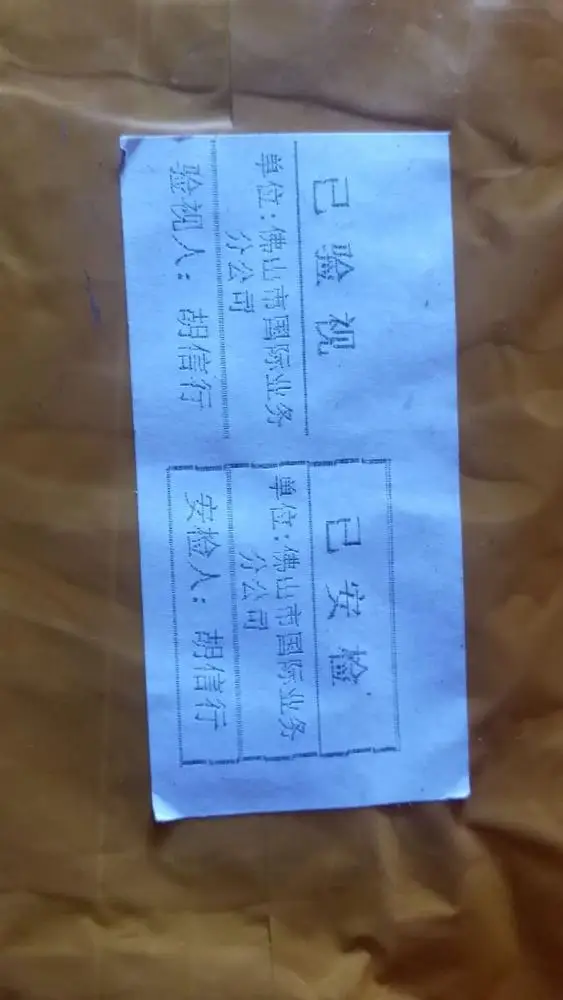 已验视
单位：佛山市国际业务
分公司
验视人：胡信行
已安检
单位：佛山市国际业务
分公司
安检人：胡信行